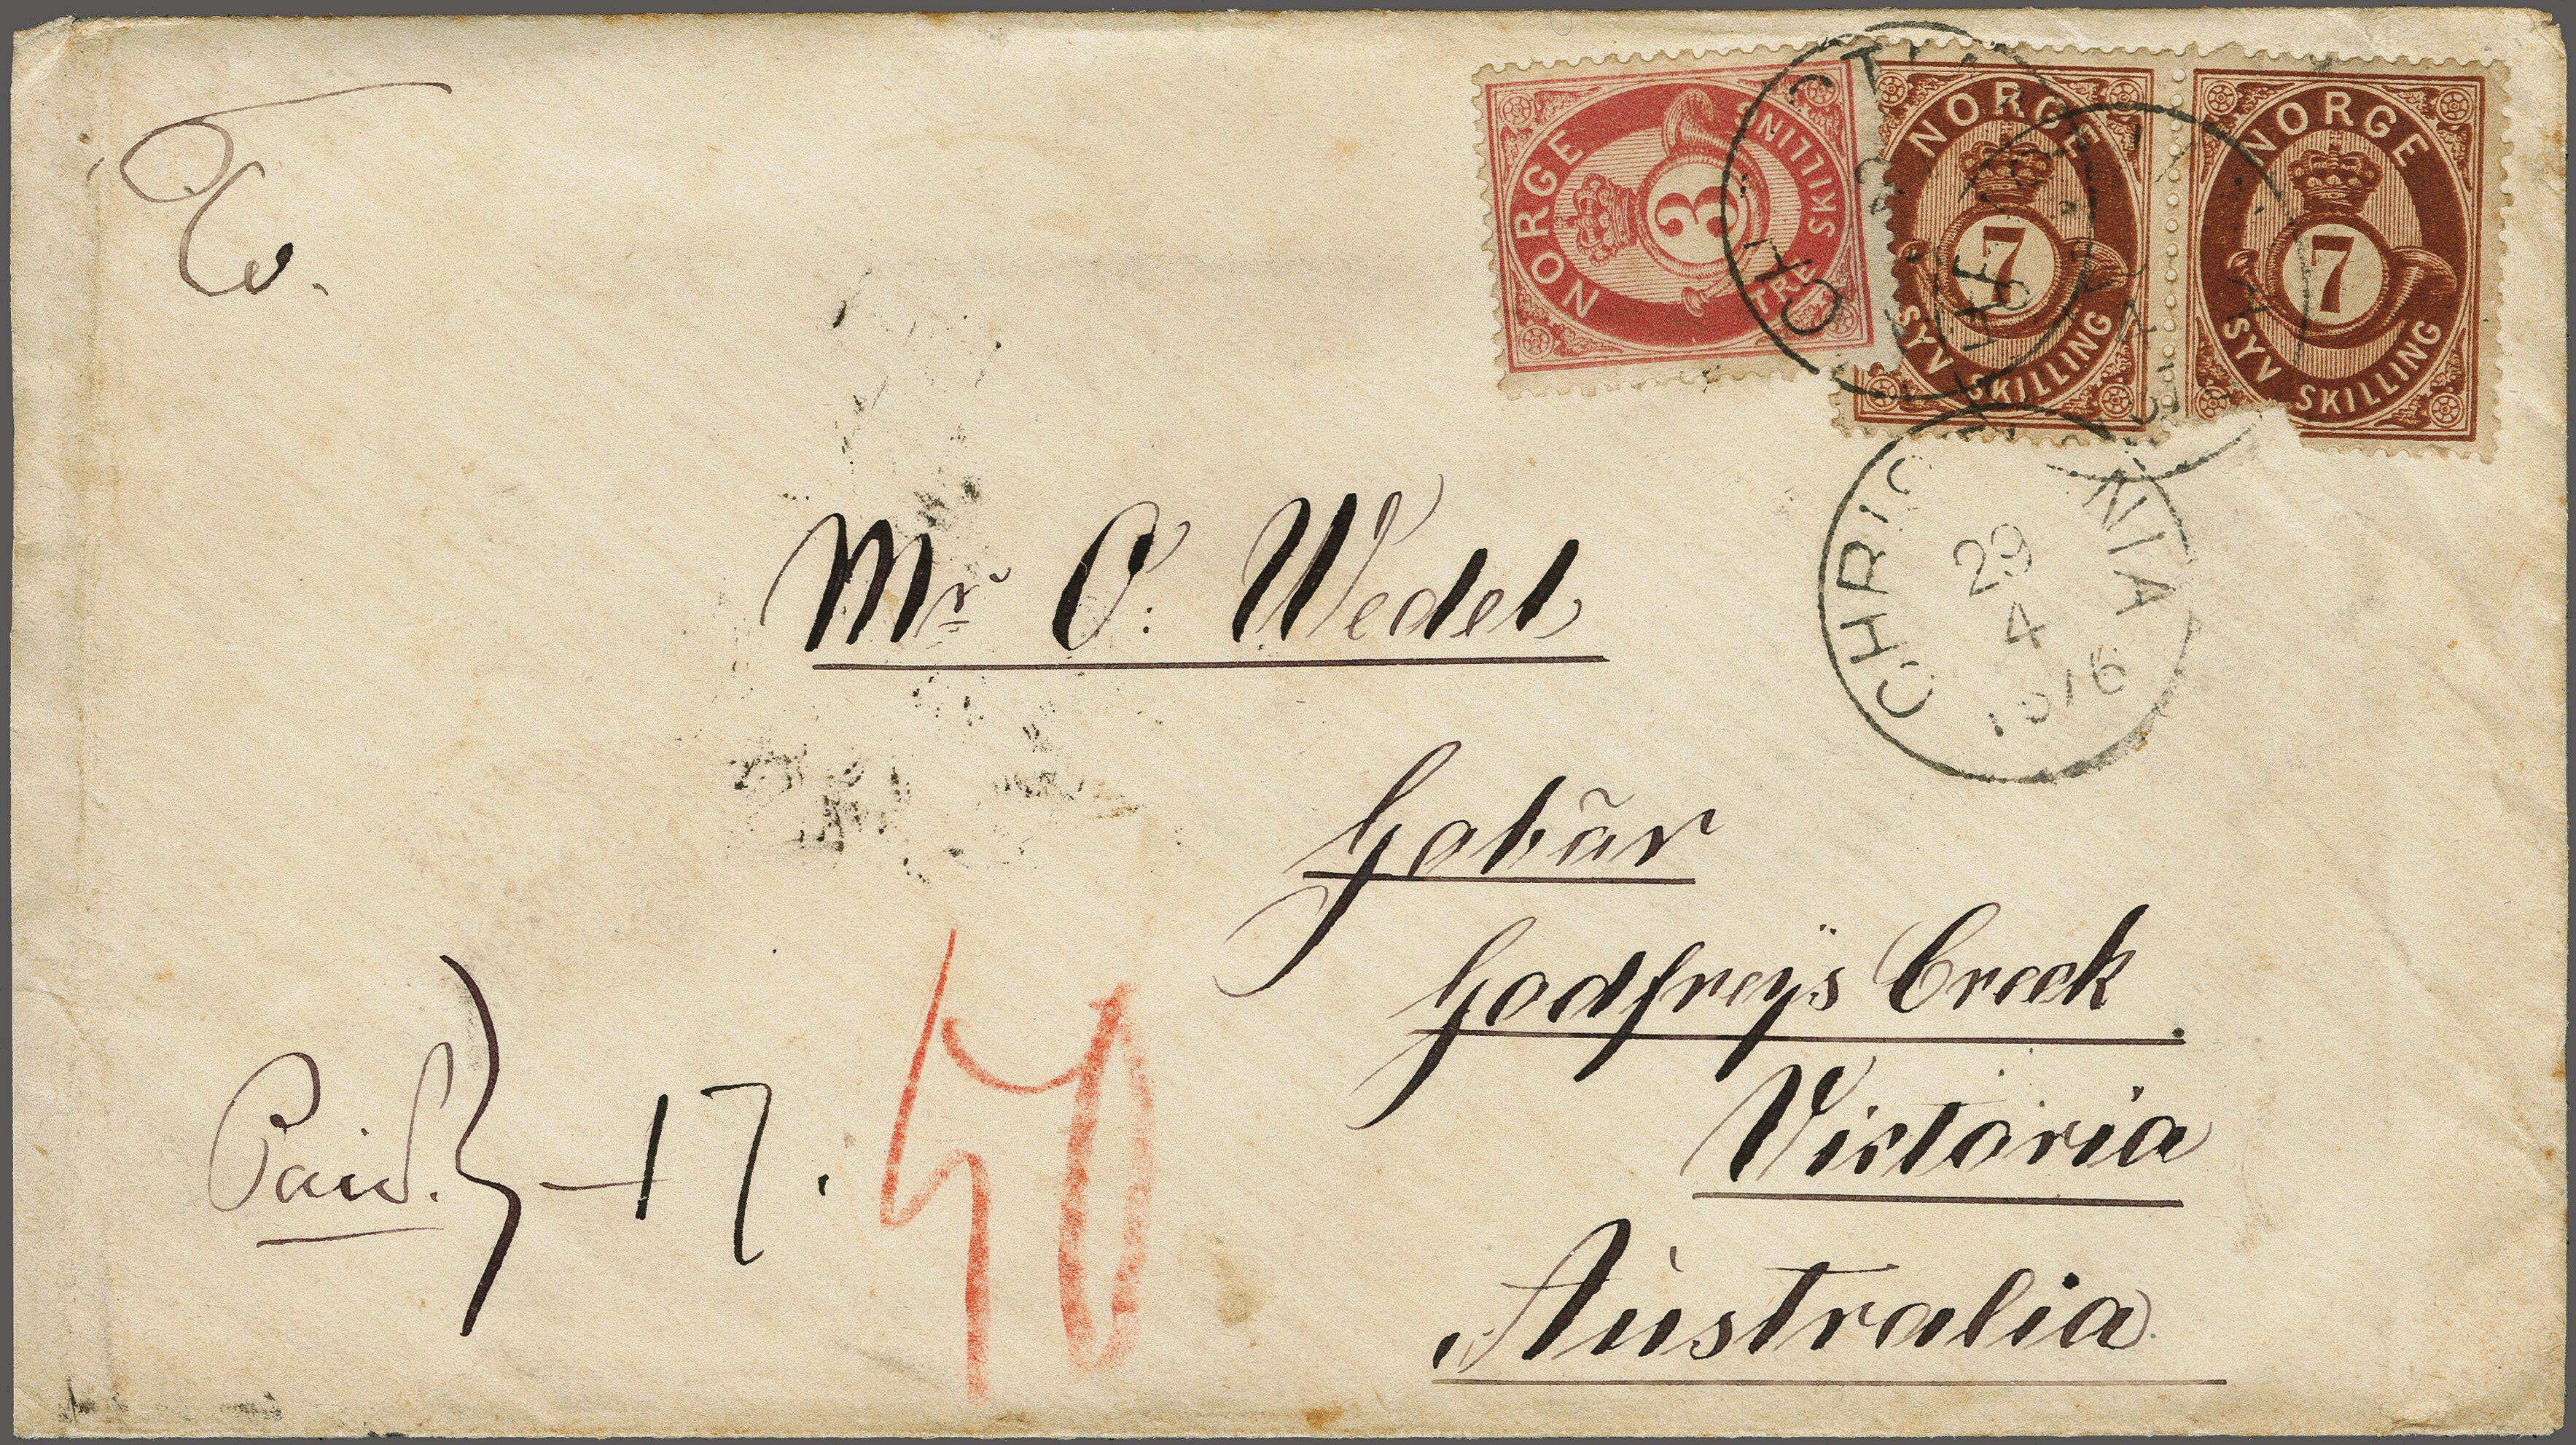 To.
NORGE
3
TRE SKILLING
NORGE
7
SYV SKILLING
NORGE
7
SYV SKILLING
29
4
1876
Mr O: Wedel
Gabär
Godfreÿs Creek.
Victoria
Australia
Paid. } — 17.
50